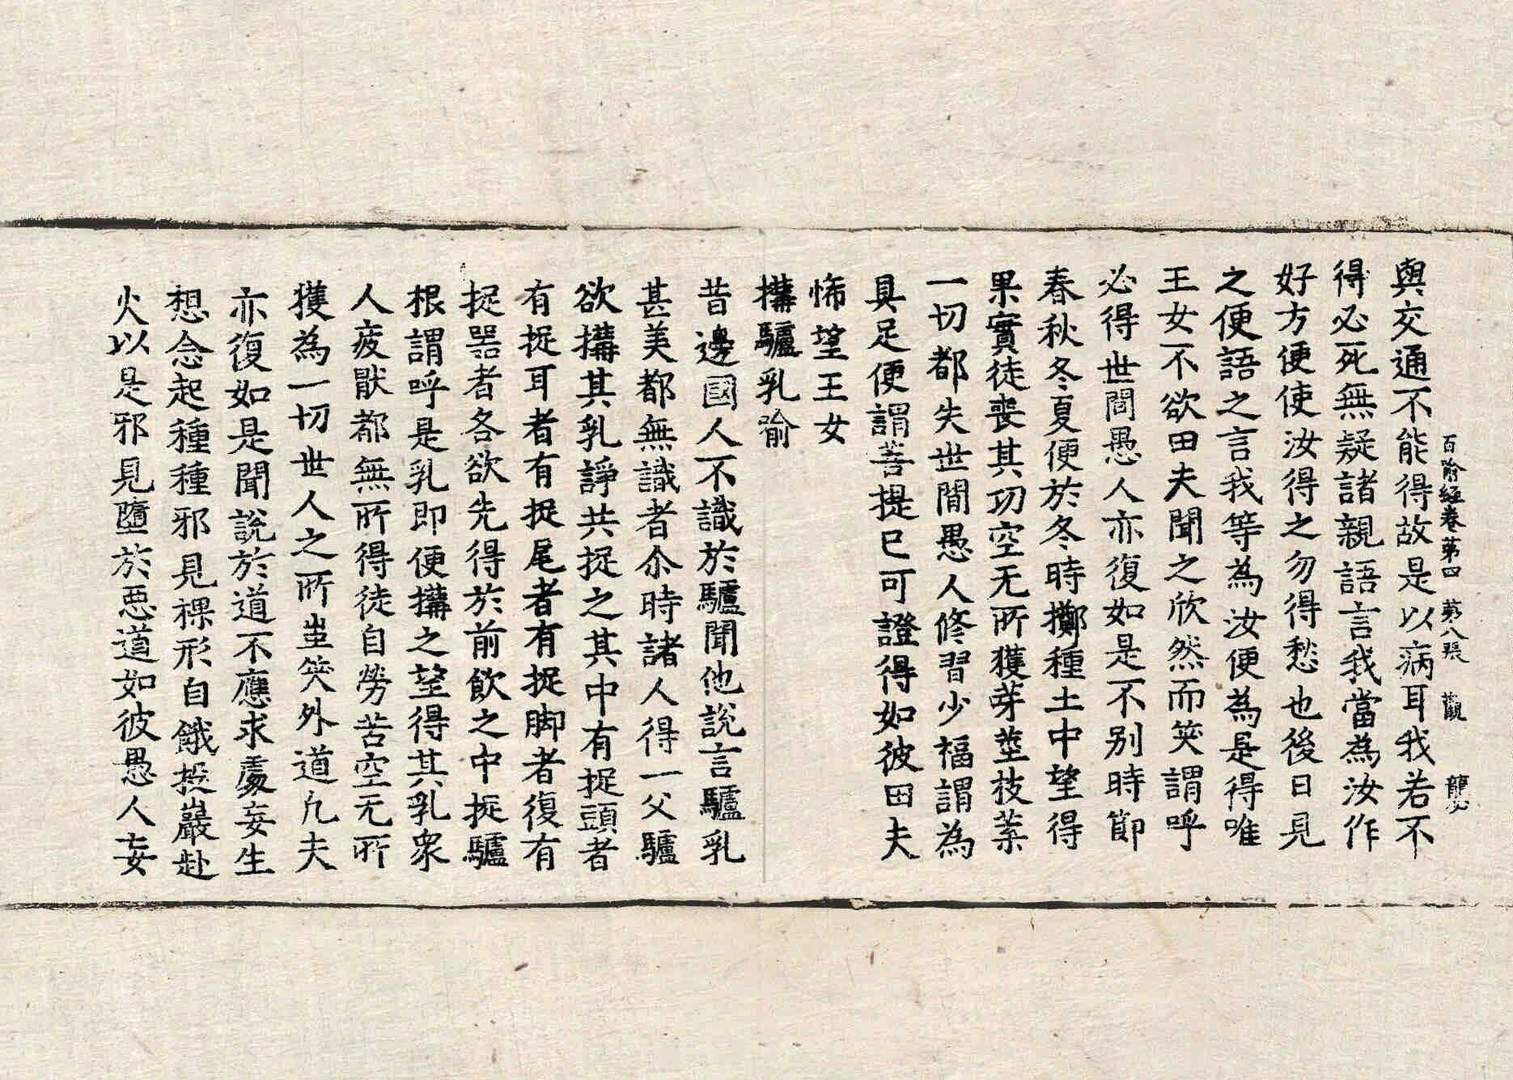 百喻經卷第四 第八張 觀
與交通不能得故是以病耳我若不
得必死無疑諸親語言我當為汝作
好方便使汝得之勿得愁也後日見
之便語之言我等為汝便為是得唯
王女不欲田夫聞之欣然而笑謂呼
必得世間愚人亦復如是不別時節
春秋冬夏便於冬時擲種土中望得
果實徒喪其功空无所獲芽莖枝葉
一切都失世間愚人修習少福謂為
具足便謂菩提已可證得如彼田夫
悕望王女
搆驢乳喻
昔邊國人不識於驢聞他說言驢乳
甚美都無識者尒時諸人得一父驢
欲搆其乳諍共捉之其中有捉頭者
有捉耳者有捉尾者有捉脚者復有
捉器者各欲先得於前飲之中捉驢
根謂呼是乳即便搆之望得其乳衆
人疲猒都無所得徒自勞苦空无所
獲為一切世人之所蚩笑外道凡夫
亦復如是聞說於道不應求處妄生
想念起種種邪見裸形自餓投巖赴
火以是邪見墮於惡道如彼愚人妄